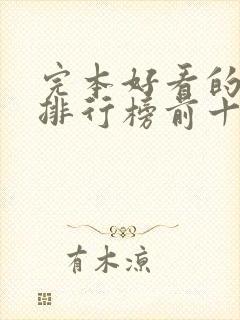 完本好看的
排行榜前十
有木凉